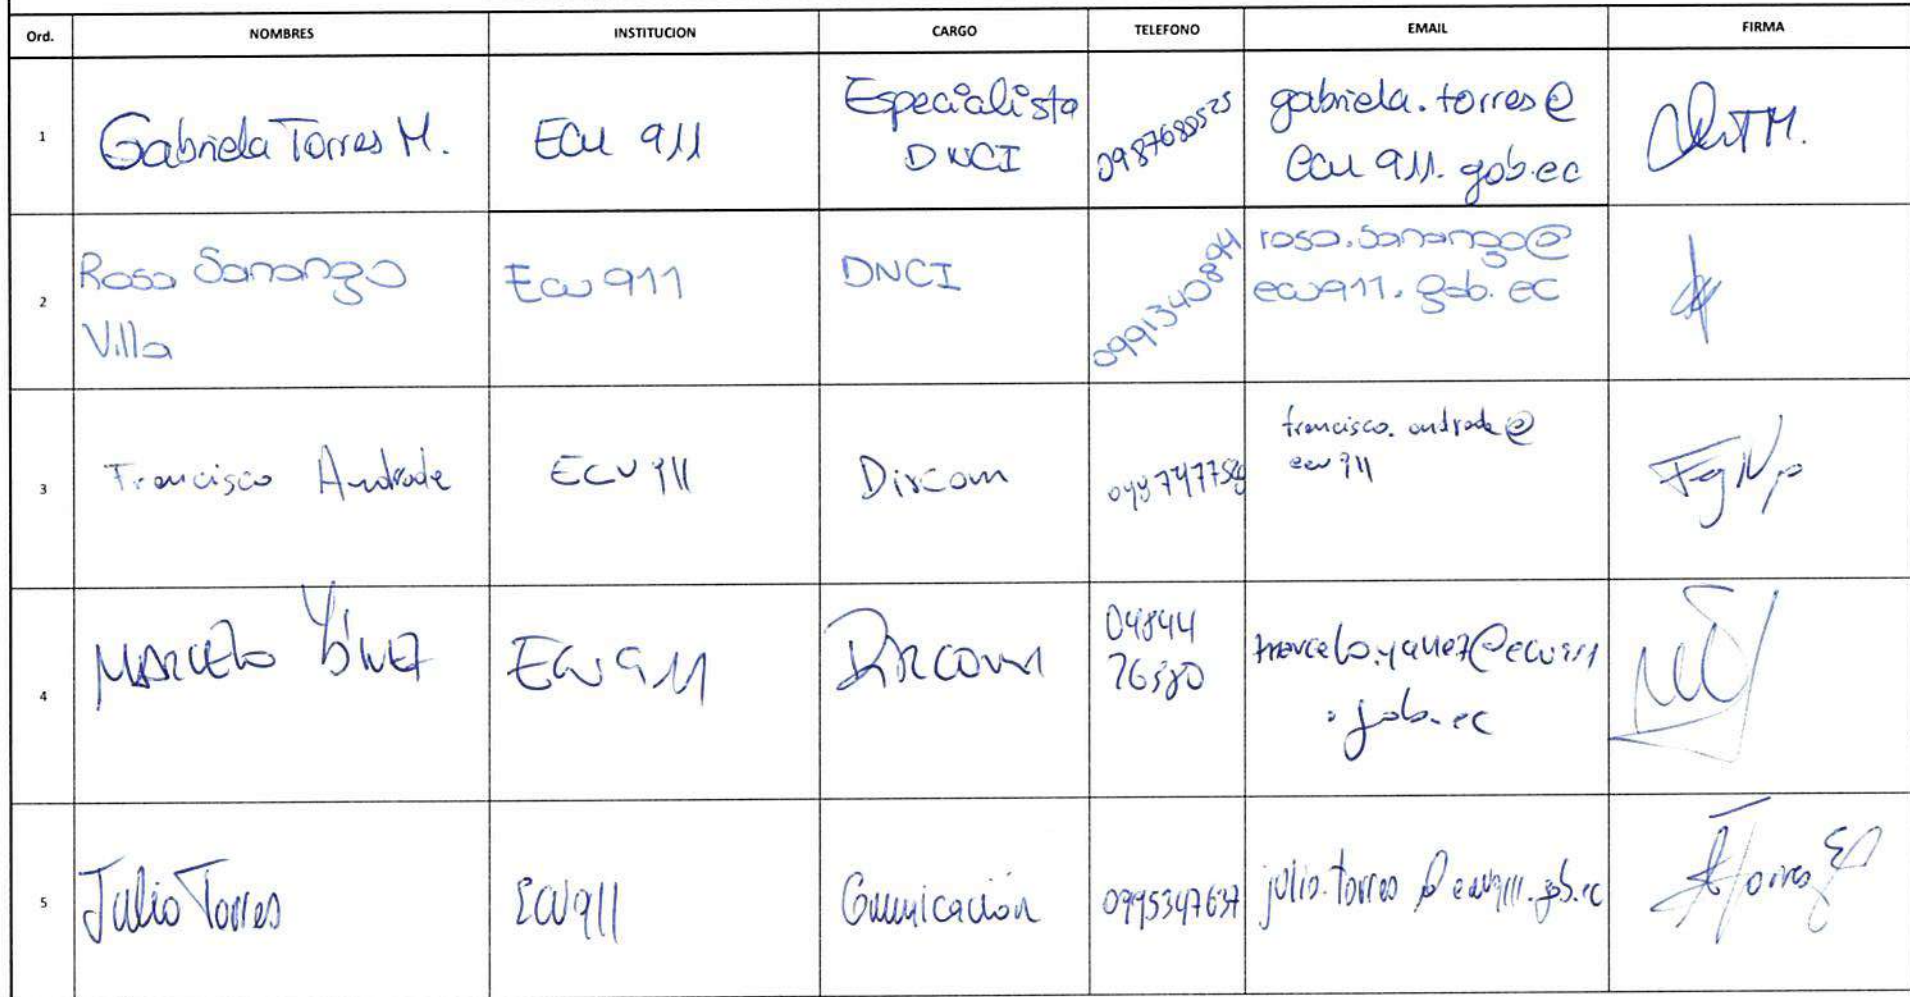 Ord. NOMBRES INSTITUCION CARGO TELEFONO EMAIL FIRMA
1 Gabriela Torres M. ECU 911 Especialista gabriela.torres@
DNCI ecu 911.gob.ec
2 Rosa Sanango Ecu 911 DNCI 0991340894 rosa.sanango@
Villa ecu911.gob.ec
3 Francisco Andrade ECU 911 Dircom francisco.andrade@
ecu 911
4 MARCELO YÁNEZ ECU 911 DIRCOM marcelo.yanez@ecu911
.gob.ec
5 Julio Torres ECU911 Comunicación 0995347637 julio.torres@ecu911.gob.ec